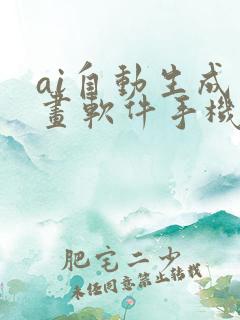 ai自動生成
畫軟件手機
肥宅二少
未经同意禁止转载